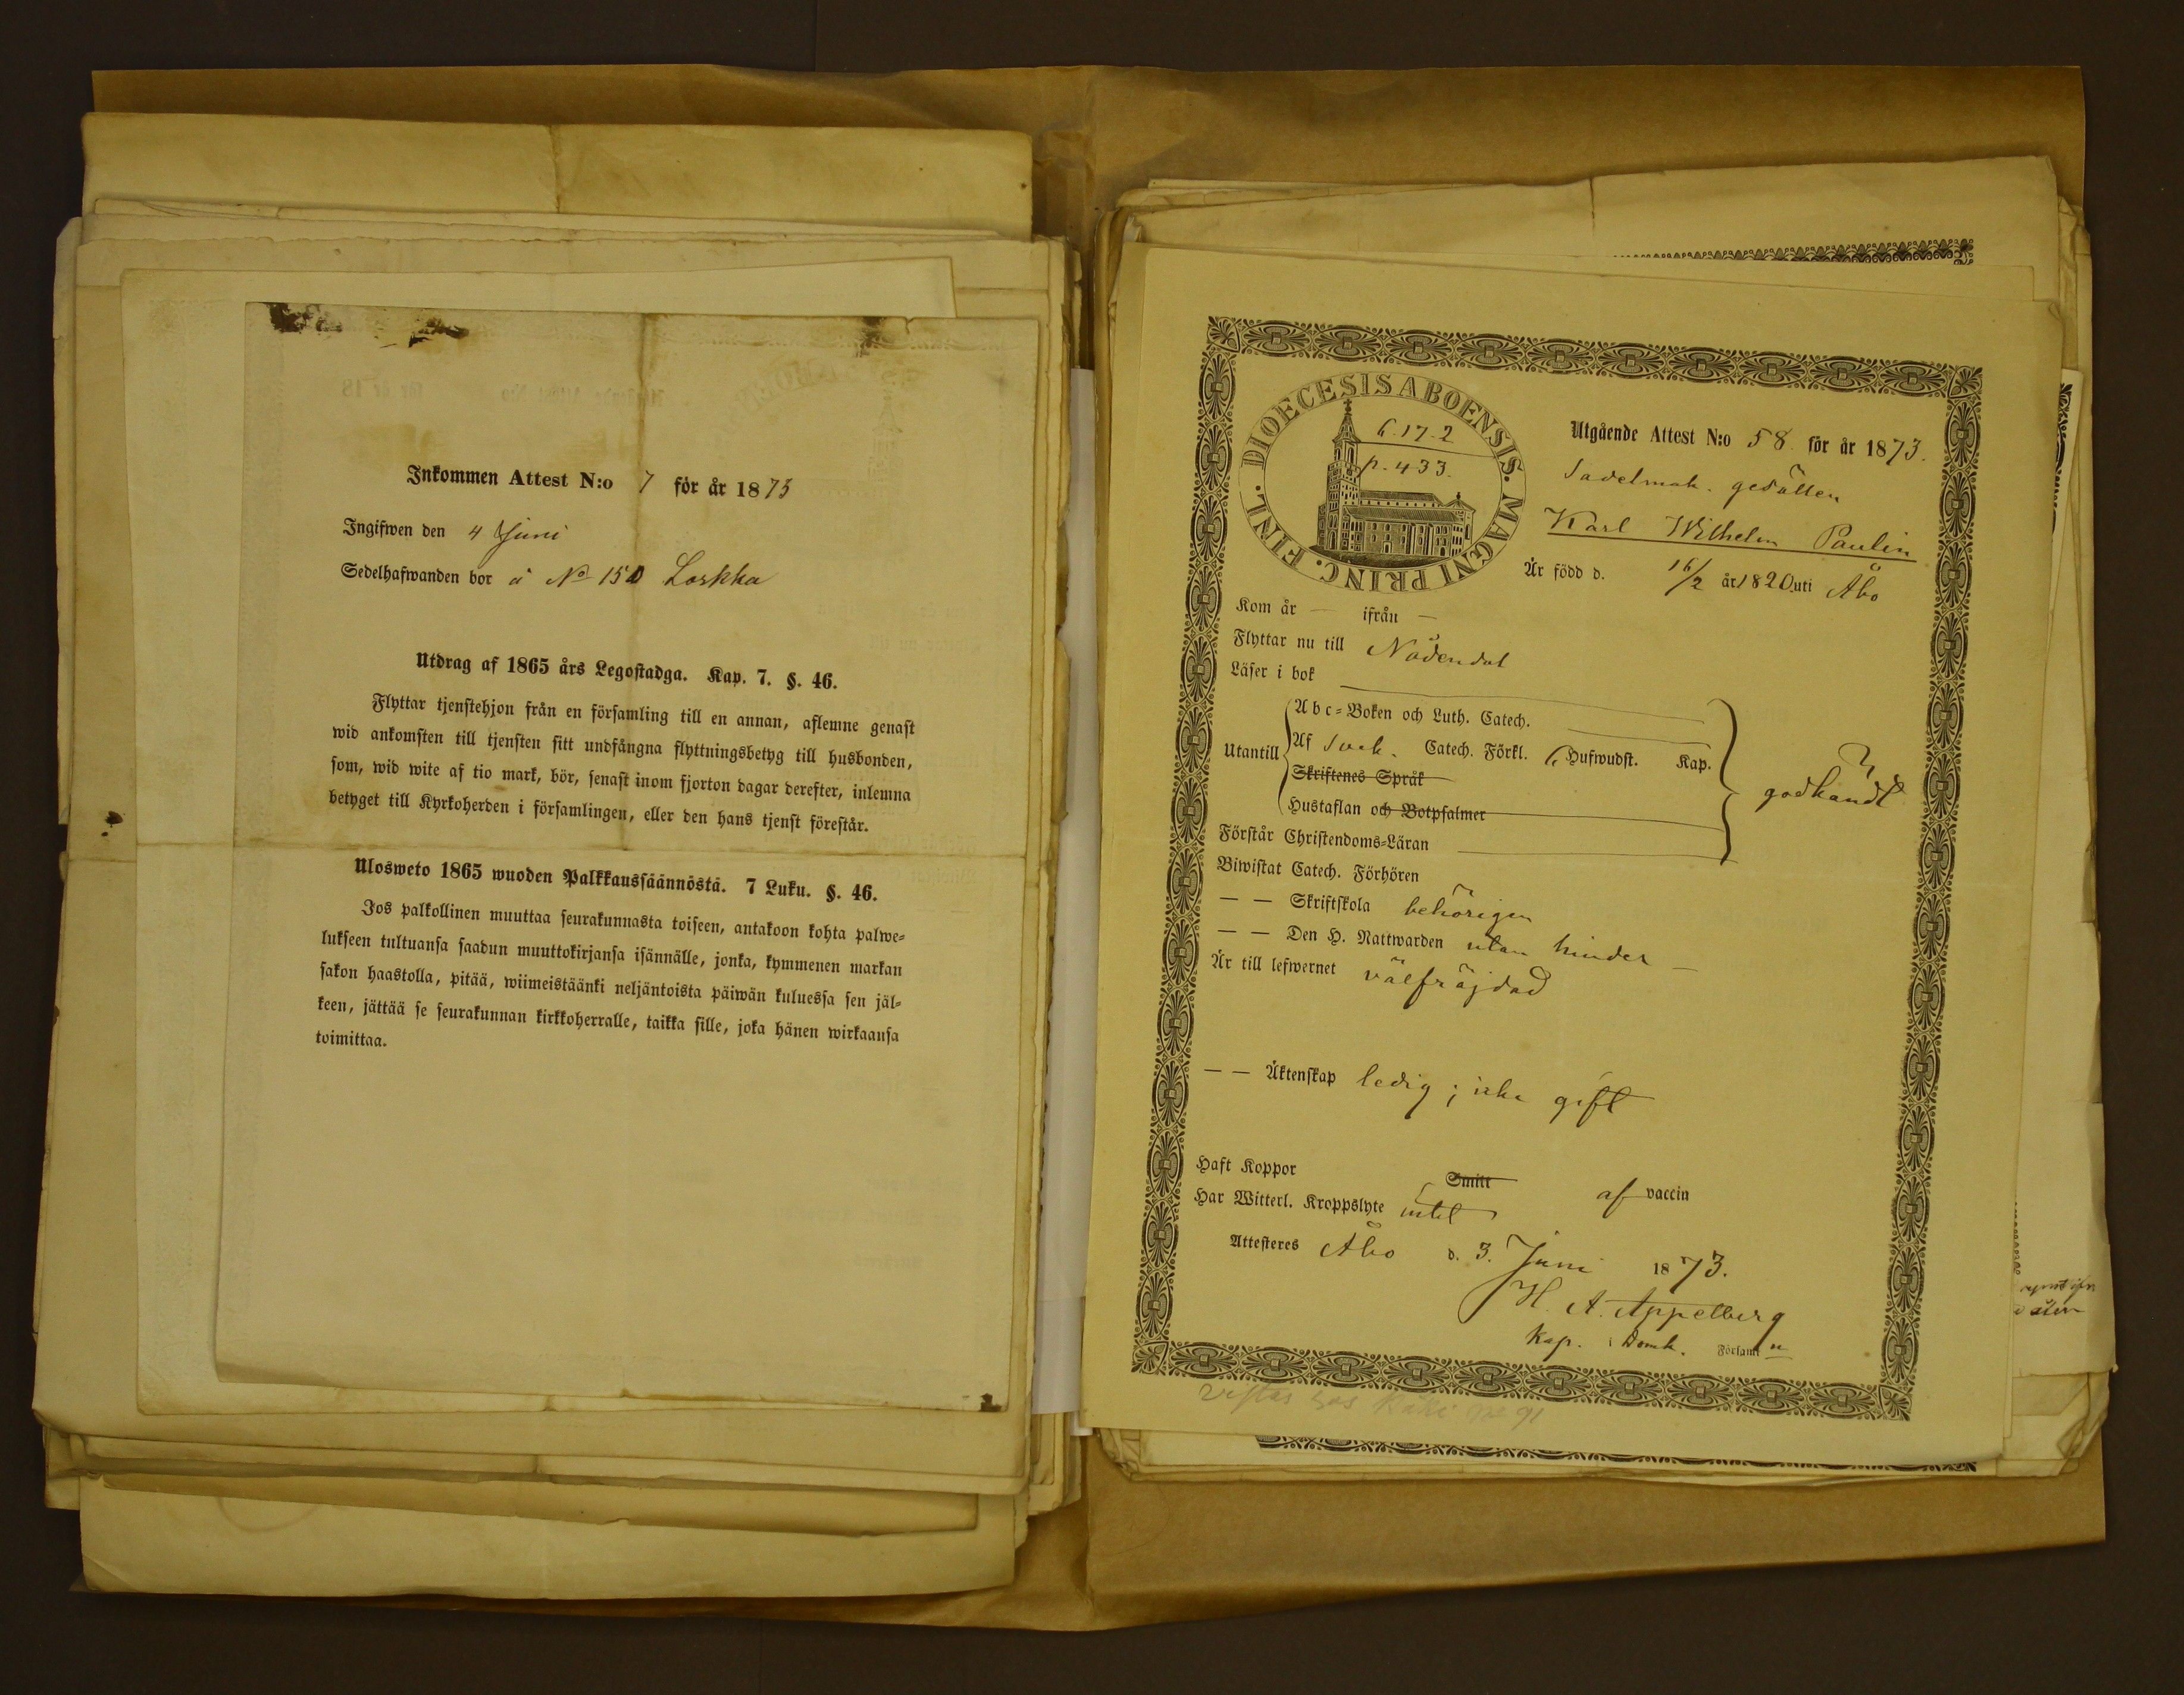 Inkommen Attest N:o 7 för år 1873
Ingifwen den 4 Juni
Sedelhafwanden bor å No 150 Loskka
Utdrag af 1865 års Legostadga. Kap. 7. §. 46.
Flyttar tjenstehjon från en församling till en annan, aflemne genast
wid ankomsten till tjensten sitt undfångna flyttningsbetyg till husbonden,
som, wid wite af tio mark, bör, senast inom fjorton dagar derefter, inlemna
betyget till Kyrkoherden i församlingen, eller den hans tjenst förestår.
Ulosweto 1865 wuoden Palkkaussäännöstä. 7 Luku. §. 46.
Jos palkollinen muuttaa seurakunnasta toiseen, antakoon kohta palwe-
lukseen tultuansa saadun muuttokirjansa isännälle, jonka, kymmenen markan
sakon haastolla, pitää, wiimeistäänki neljäntoista päiwän kuluessa sen jäl-
keen, jättää se seurakunnan kirkkoherralle, taikka sille, joka hänen wirkaansa
toimittaa.
DIOECESIS ABOENSIS. MAGNI PRINC. FINL.
6.17.2
p. 433.
Utgående Attest N:o 58 för år 1873.
Sadelmak. gesällen
Karl Wilhelm Paulin
Är född d. 16/2 år 1820 uti Åbo
Kom år — ifrån —
Flyttar nu till Nådendal
Läser i bok
Abc-Boken och Luth. Catech.
Utantill Af Sveb. Catech. Förkl. 6 Hufwudst. Kap.
Skriftenes Språk
godkändt
Hustaflan och Botpsalmer
Förstår Christendoms-Läran
Biwistat Catech. Förhören
— — Skriftskola behörigen
— — Den H. Nattwarden utan hinder —
Är till lefwernet välfräjdad
— — Äktenskap ledig; icke gift
Haft Koppor Smitt af vaccin
Har Witterl. Kroppslyte intet
Attesteres Åbo d. 3. Juni 1873.
H. A. Appelberg
Kap. i Domk. Förs:n
vistas hos Käki No 91